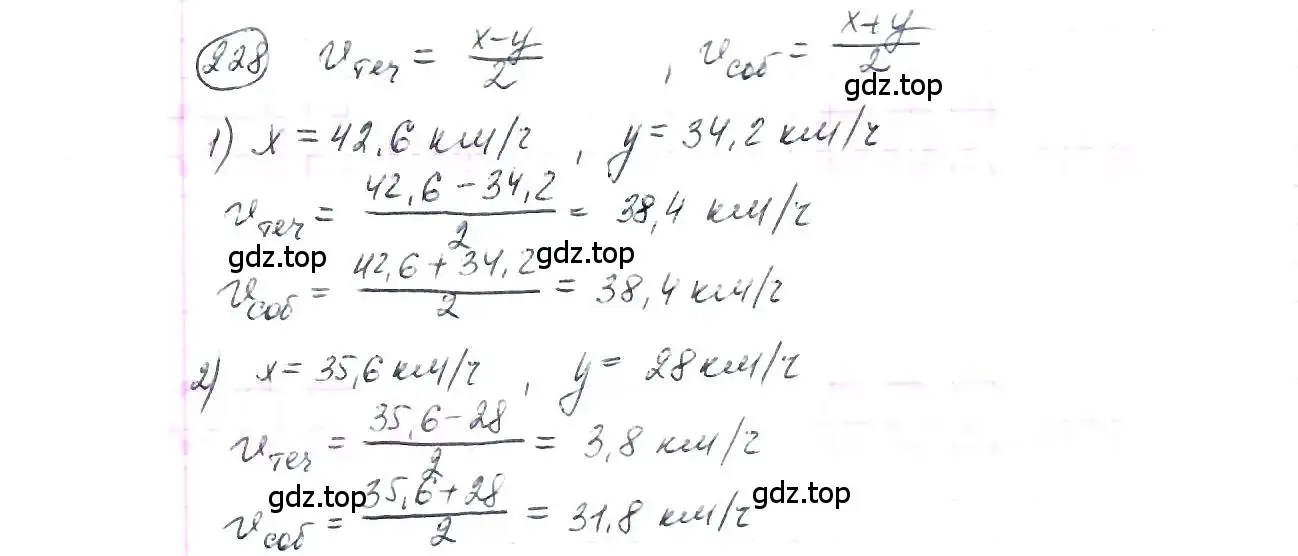 228 υтеч = (x-y)/2 , υсоб = (x+y)/2
gdz.top
1) x = 42,6 км/ч , y = 34,2 км/ч
υтеч = (42,6 - 34,2)/2 = 38,4 км/ч
gdz.top gdz.top
υсоб = (42,6 + 34,2)/2 = 38,4 км/ч
2) x = 35,6 км/ч , y = 28 км/ч
υтеч = (35,6 - 28)/2 = 3,8 км/ч
gdz.top gdz.top
υсоб = (35,6 + 28)/2 = 31,8 км/ч